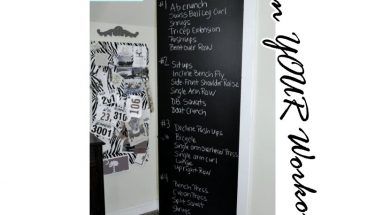 #1 Ab crunch
Swiss Ball Leg Curl
Shrugs
Tricep Extension
Pushups
Bentover Row
#2 Situps
Incline Bench Fly
Side Front Shoulder Raise
Single Arm Row
DB Squats
Boat Crunch
#3 Decline Push Ups
Bicycle
Single arm overhead Press
Single arm curl
Lunge
Upright Row
#4 Bench Press
Cuban Press
Split Squat
Shrugs
291
901
90001
YOUR Worko